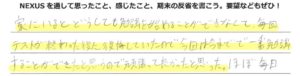 NEXUS を通して思ったこと、感じたこと、期末の反省を書こう。要望などもぜひ！
家にいるとどうしても勉強を始めることができなくて毎回
テストが終わったあと後悔していたので今回は今までで一番勉強
することができたと思うので頑張ってよかったと思った。ほぼ毎日